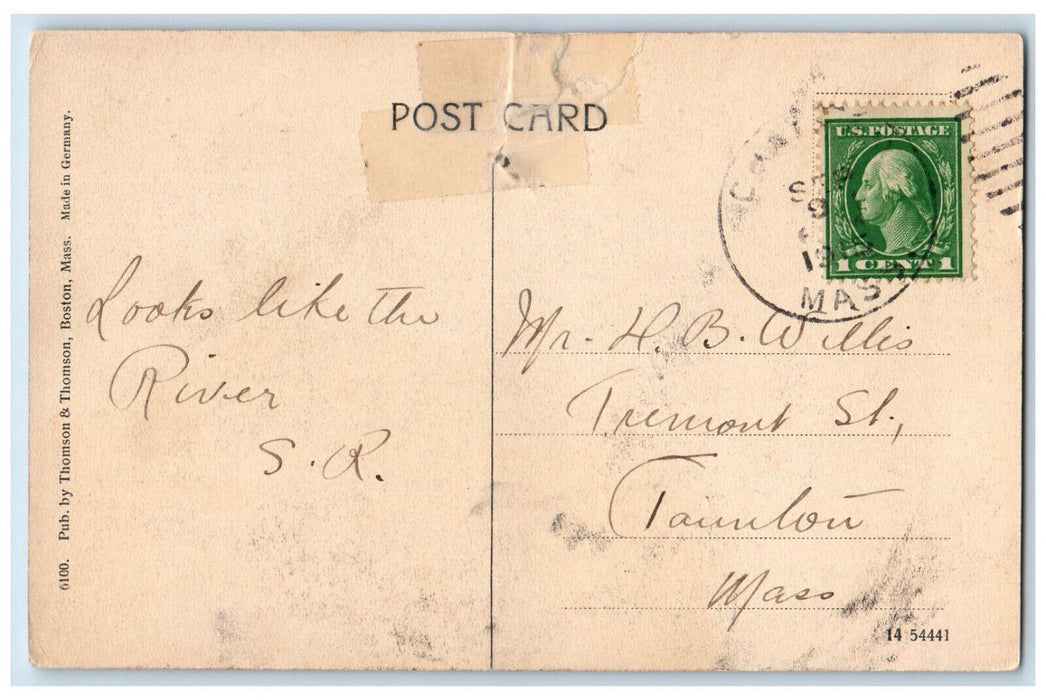 POST CARD
U.S. POSTAGE
1 CENT 1
SEP
9
MASS
Looks like the
River
S. R.
Mr. H. B. Willis
Tremont St.,
Taunton
Mass
14 54441
6100. Pub. by Thomson & Thomson, Boston, Mass. Made in Germany.